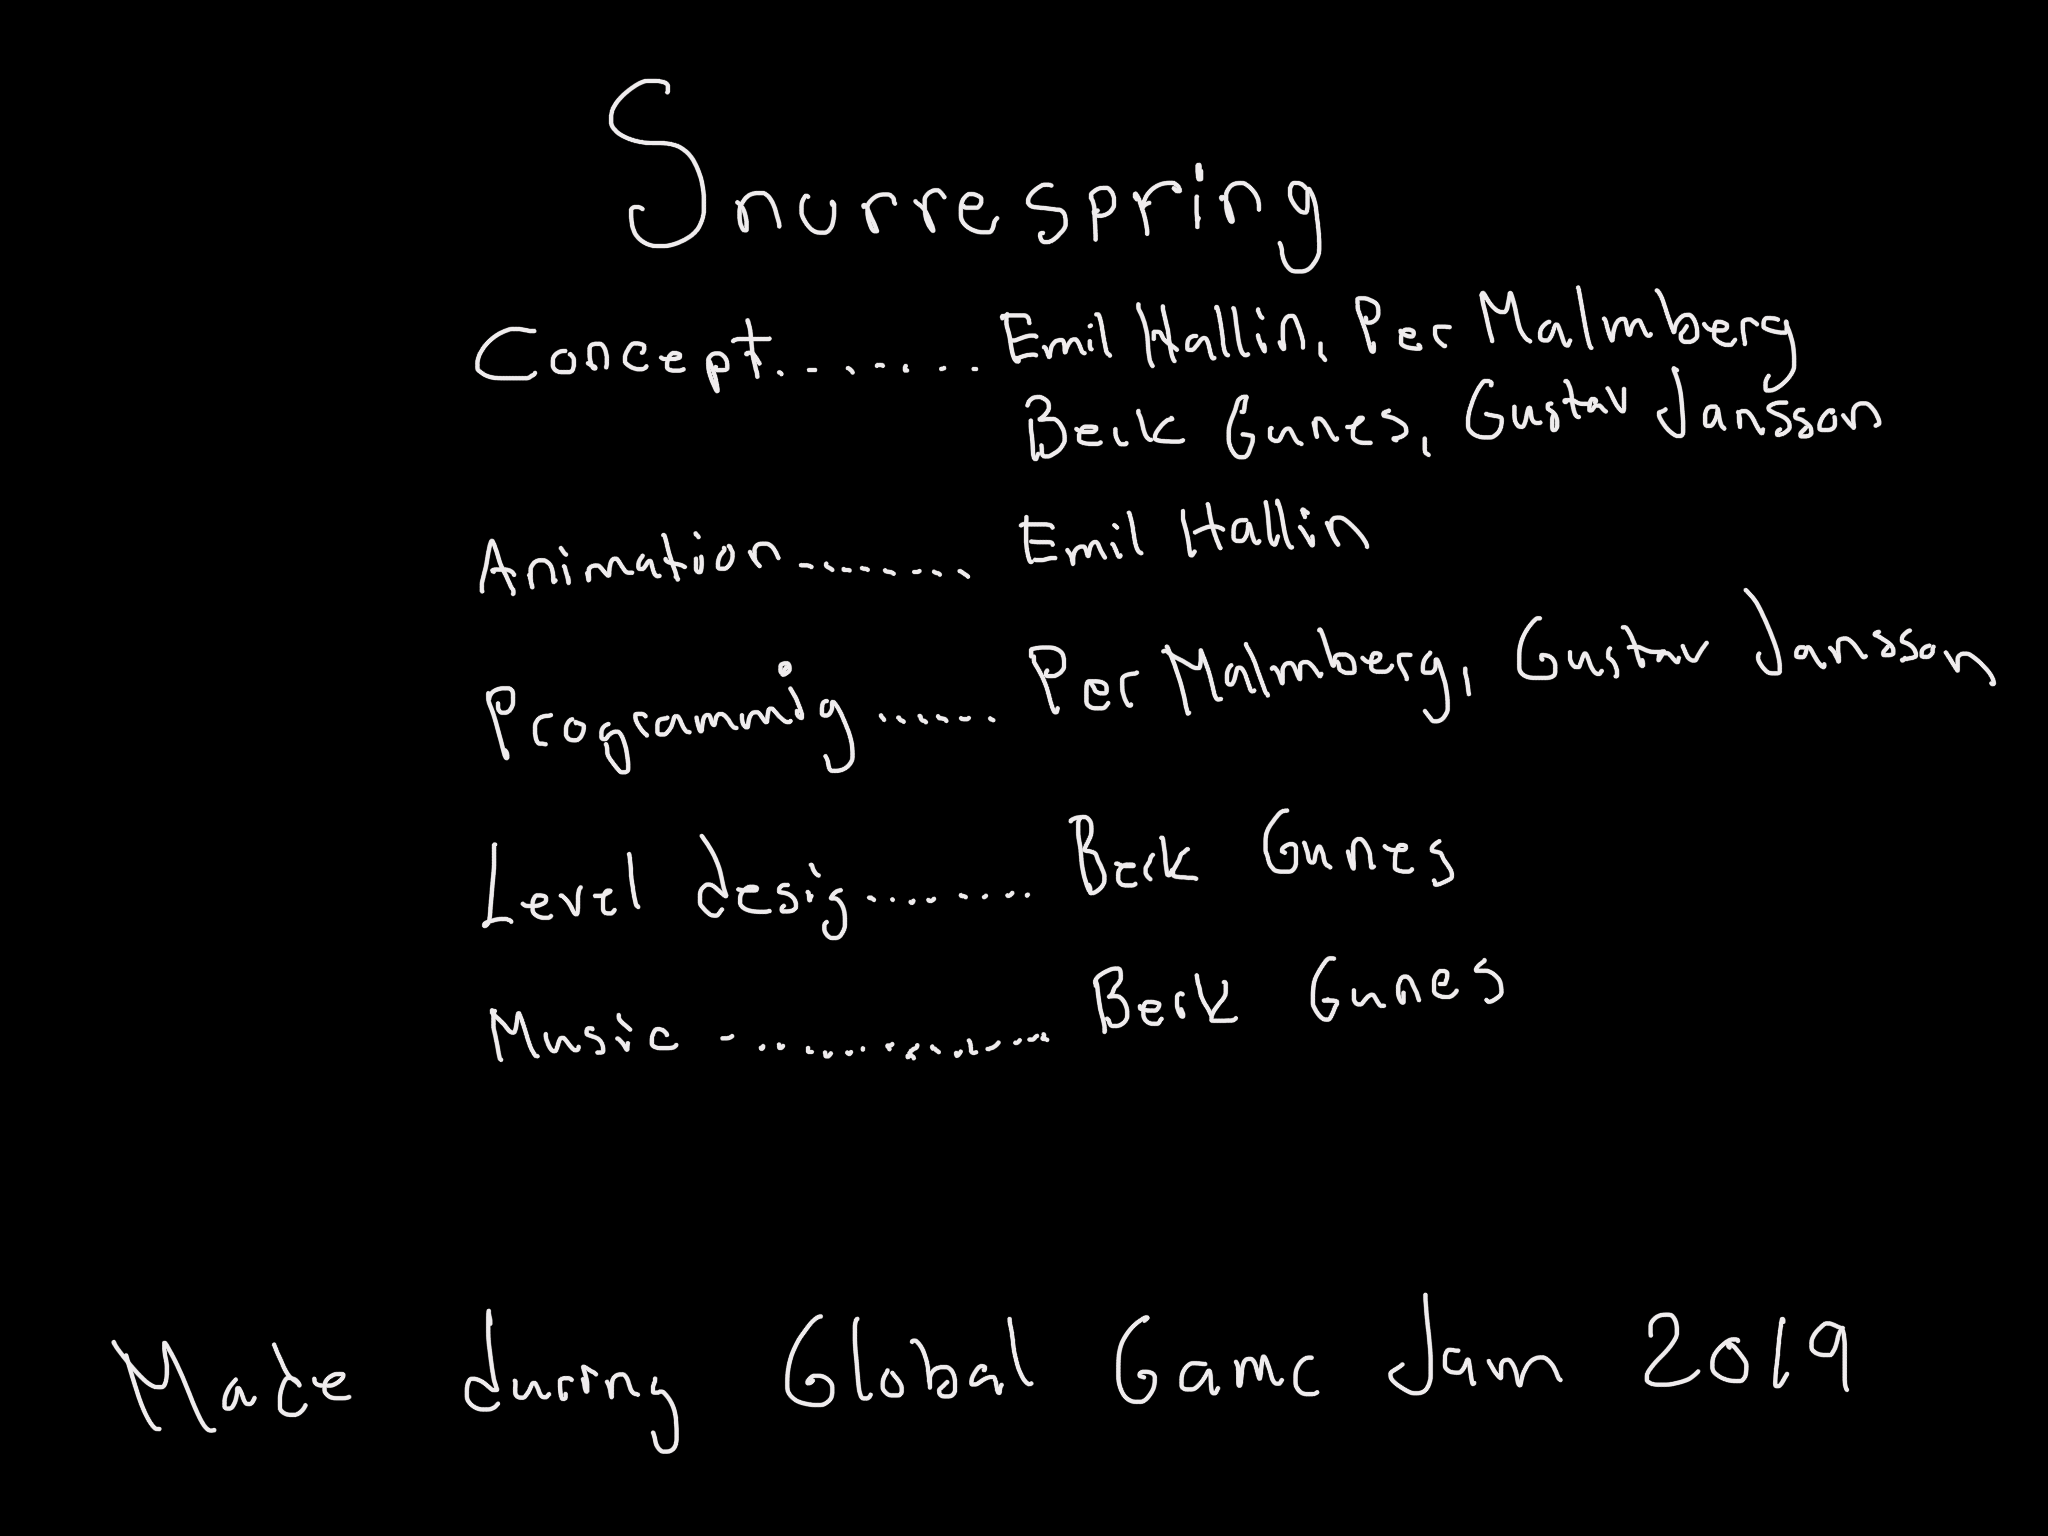 Snurrespring
Concept........ Emil Hallin, Per Malmberg
Berk Gunes, Gustav Jansson
Animation......... Emil Hallin
Programmig...... Per Malmberg, Gustav Jansson
Level desig......... Berk Gunes
Music ................ Berk Gunes
Made during Global Game Jam 2019